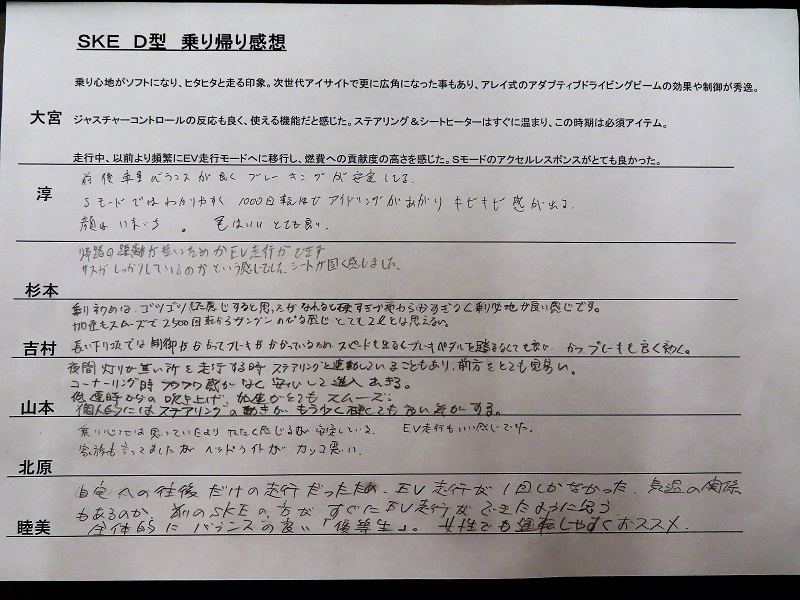 SKE D型 乗り帰り感想
乗り心地がソフトになり、ヒタヒタと走る印象。次世代アイサイトで更に広角になった事もあり、アレイ式のアダプティブドライビングビームの効果や制御が秀逸。
大宮 ジャスチャーコントロールの反応も良く、使える機能だと感じた。ステアリング＆シートヒーターはすぐに温まり、この時期は必須アイテム。
走行中、以前より頻繁にEV走行モードへに移行し、燃費への貢献度の高さを感じた。Sモードのアクセルレスポンスがとても良かった。
前後車重バランスが良く ブレーキングが安定してる
淳 Sモードではわかりやすく 1000回転ほど アイドリングがあがり キビキビ感が出る
顔はいまいち 。 色はいい とても良い
帰路の距離が短いためかEV走行ができず
サスがしっかりしているのかという感じでした。シートが固く感じました。
杉本
乗り初めは、ゴツゴツした感じすると思ったが なれると硬すぎず柔らかすぎなく乗り心地が良い感じです。
加速もスムーズで2500回転からグングンのびる感じ とても2Lとは思えない。
吉村 長い下り坂では制御がかかってブレーキがかかっているため スピードも出るくブレーキペダルを踏まなくても良い かつブレーキも良く効く。
夜間 灯りが無い所を走行する時、ステアリングと連動していることもあり、前方をとても見易い。
コーナーリング時 フワフワ感がなく 安心して進入できる。
低速時からの吹き上げ、加速がとてもスムーズ。
山本 個人的にはステアリングの動きが、もう少く硬くても良い気がする。
乗り心地は思っていたより かたく感じるが 安定している。 EV走行もいい感じでした。
家族も言ってましたが ヘッドライトが カッコ悪い。
北原
自宅への往復だけの走行だったため、EV走行が1回しかなかった。気温の関係
もあるのか、前のSKEの方が すぐにEV走行ができたように思う
睦美 全体的に バランスの良い「優等生」。女性でも運転しやすくおススメ。